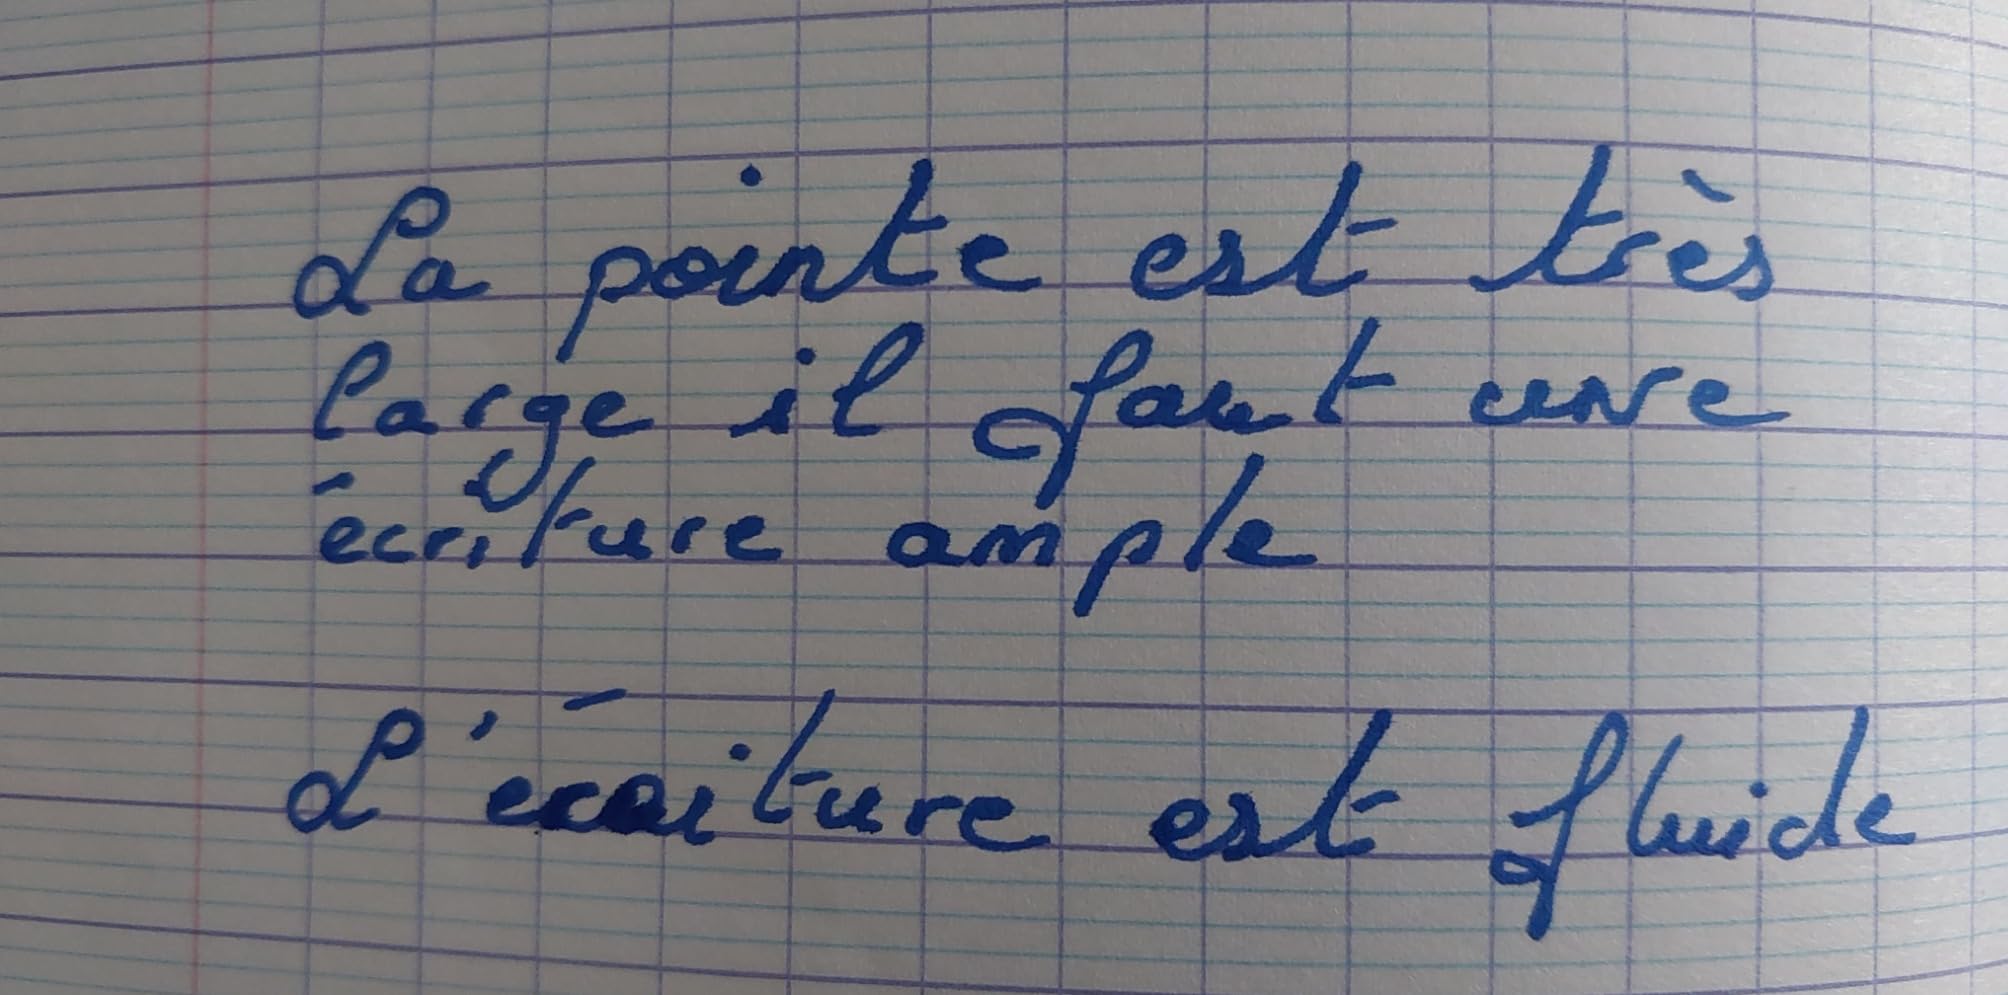 La pointe est très
large il faut une
écriture ample
L'écriture est fluide